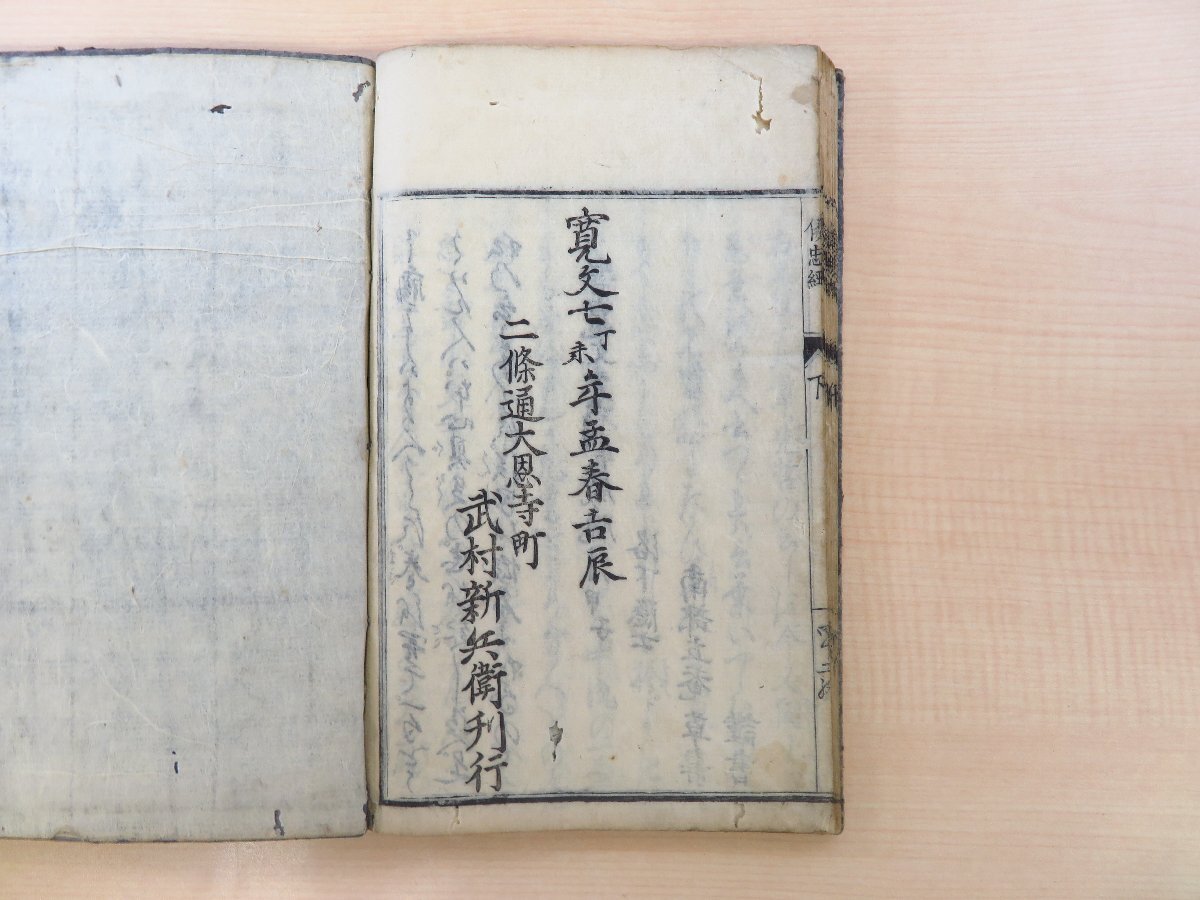 寛文七丁未年孟春吉辰
二條通大恩寺町
武村新兵衛刊行
忠経
下